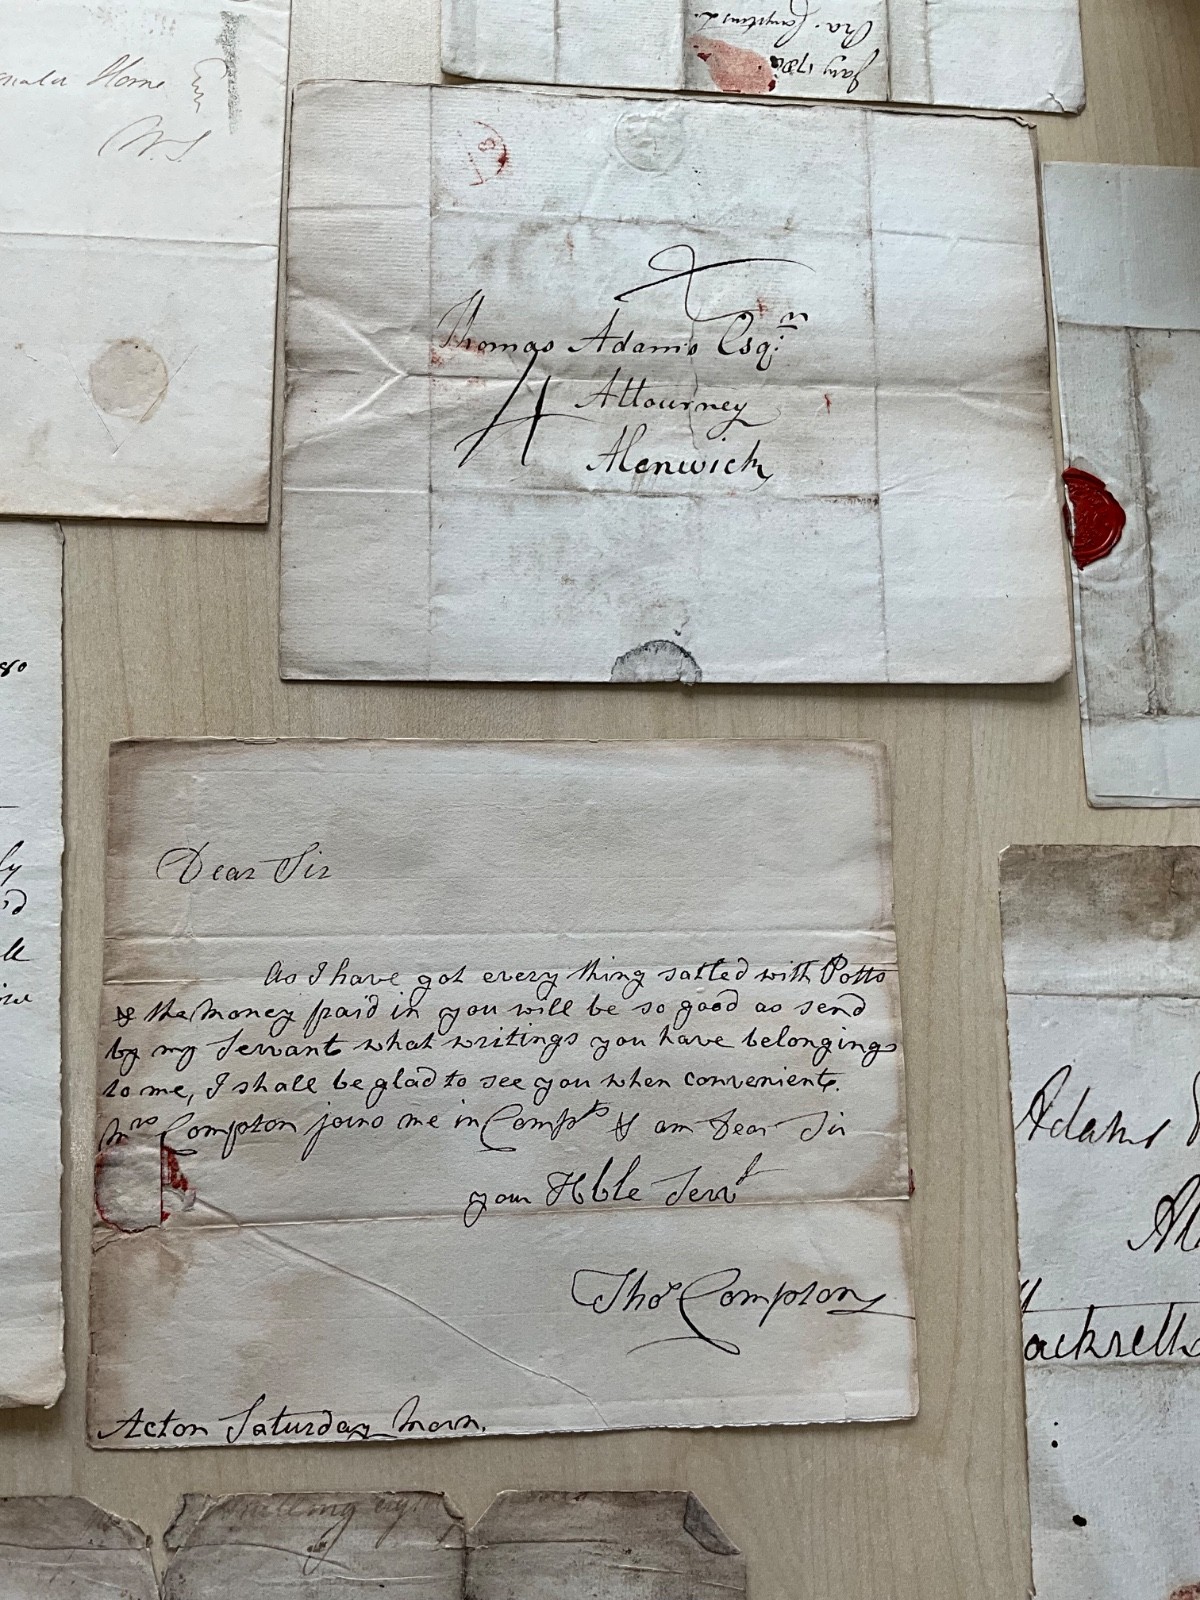 Home
W.S.
Jany 1780
Thomas Adams Esqr
Attourney
Alenwick
4
Dear Sir
As I have got every thing satled with Potts
& the money paid in you will be so good as send
by my Servant what writings you have belonging
to me, I shall be glad to see you when convenient.
Mrs Compton joins me in Compts & am Dear Sir
your Hble Servt
Thos Compton
Acton Saturday Morn.
80
Adams